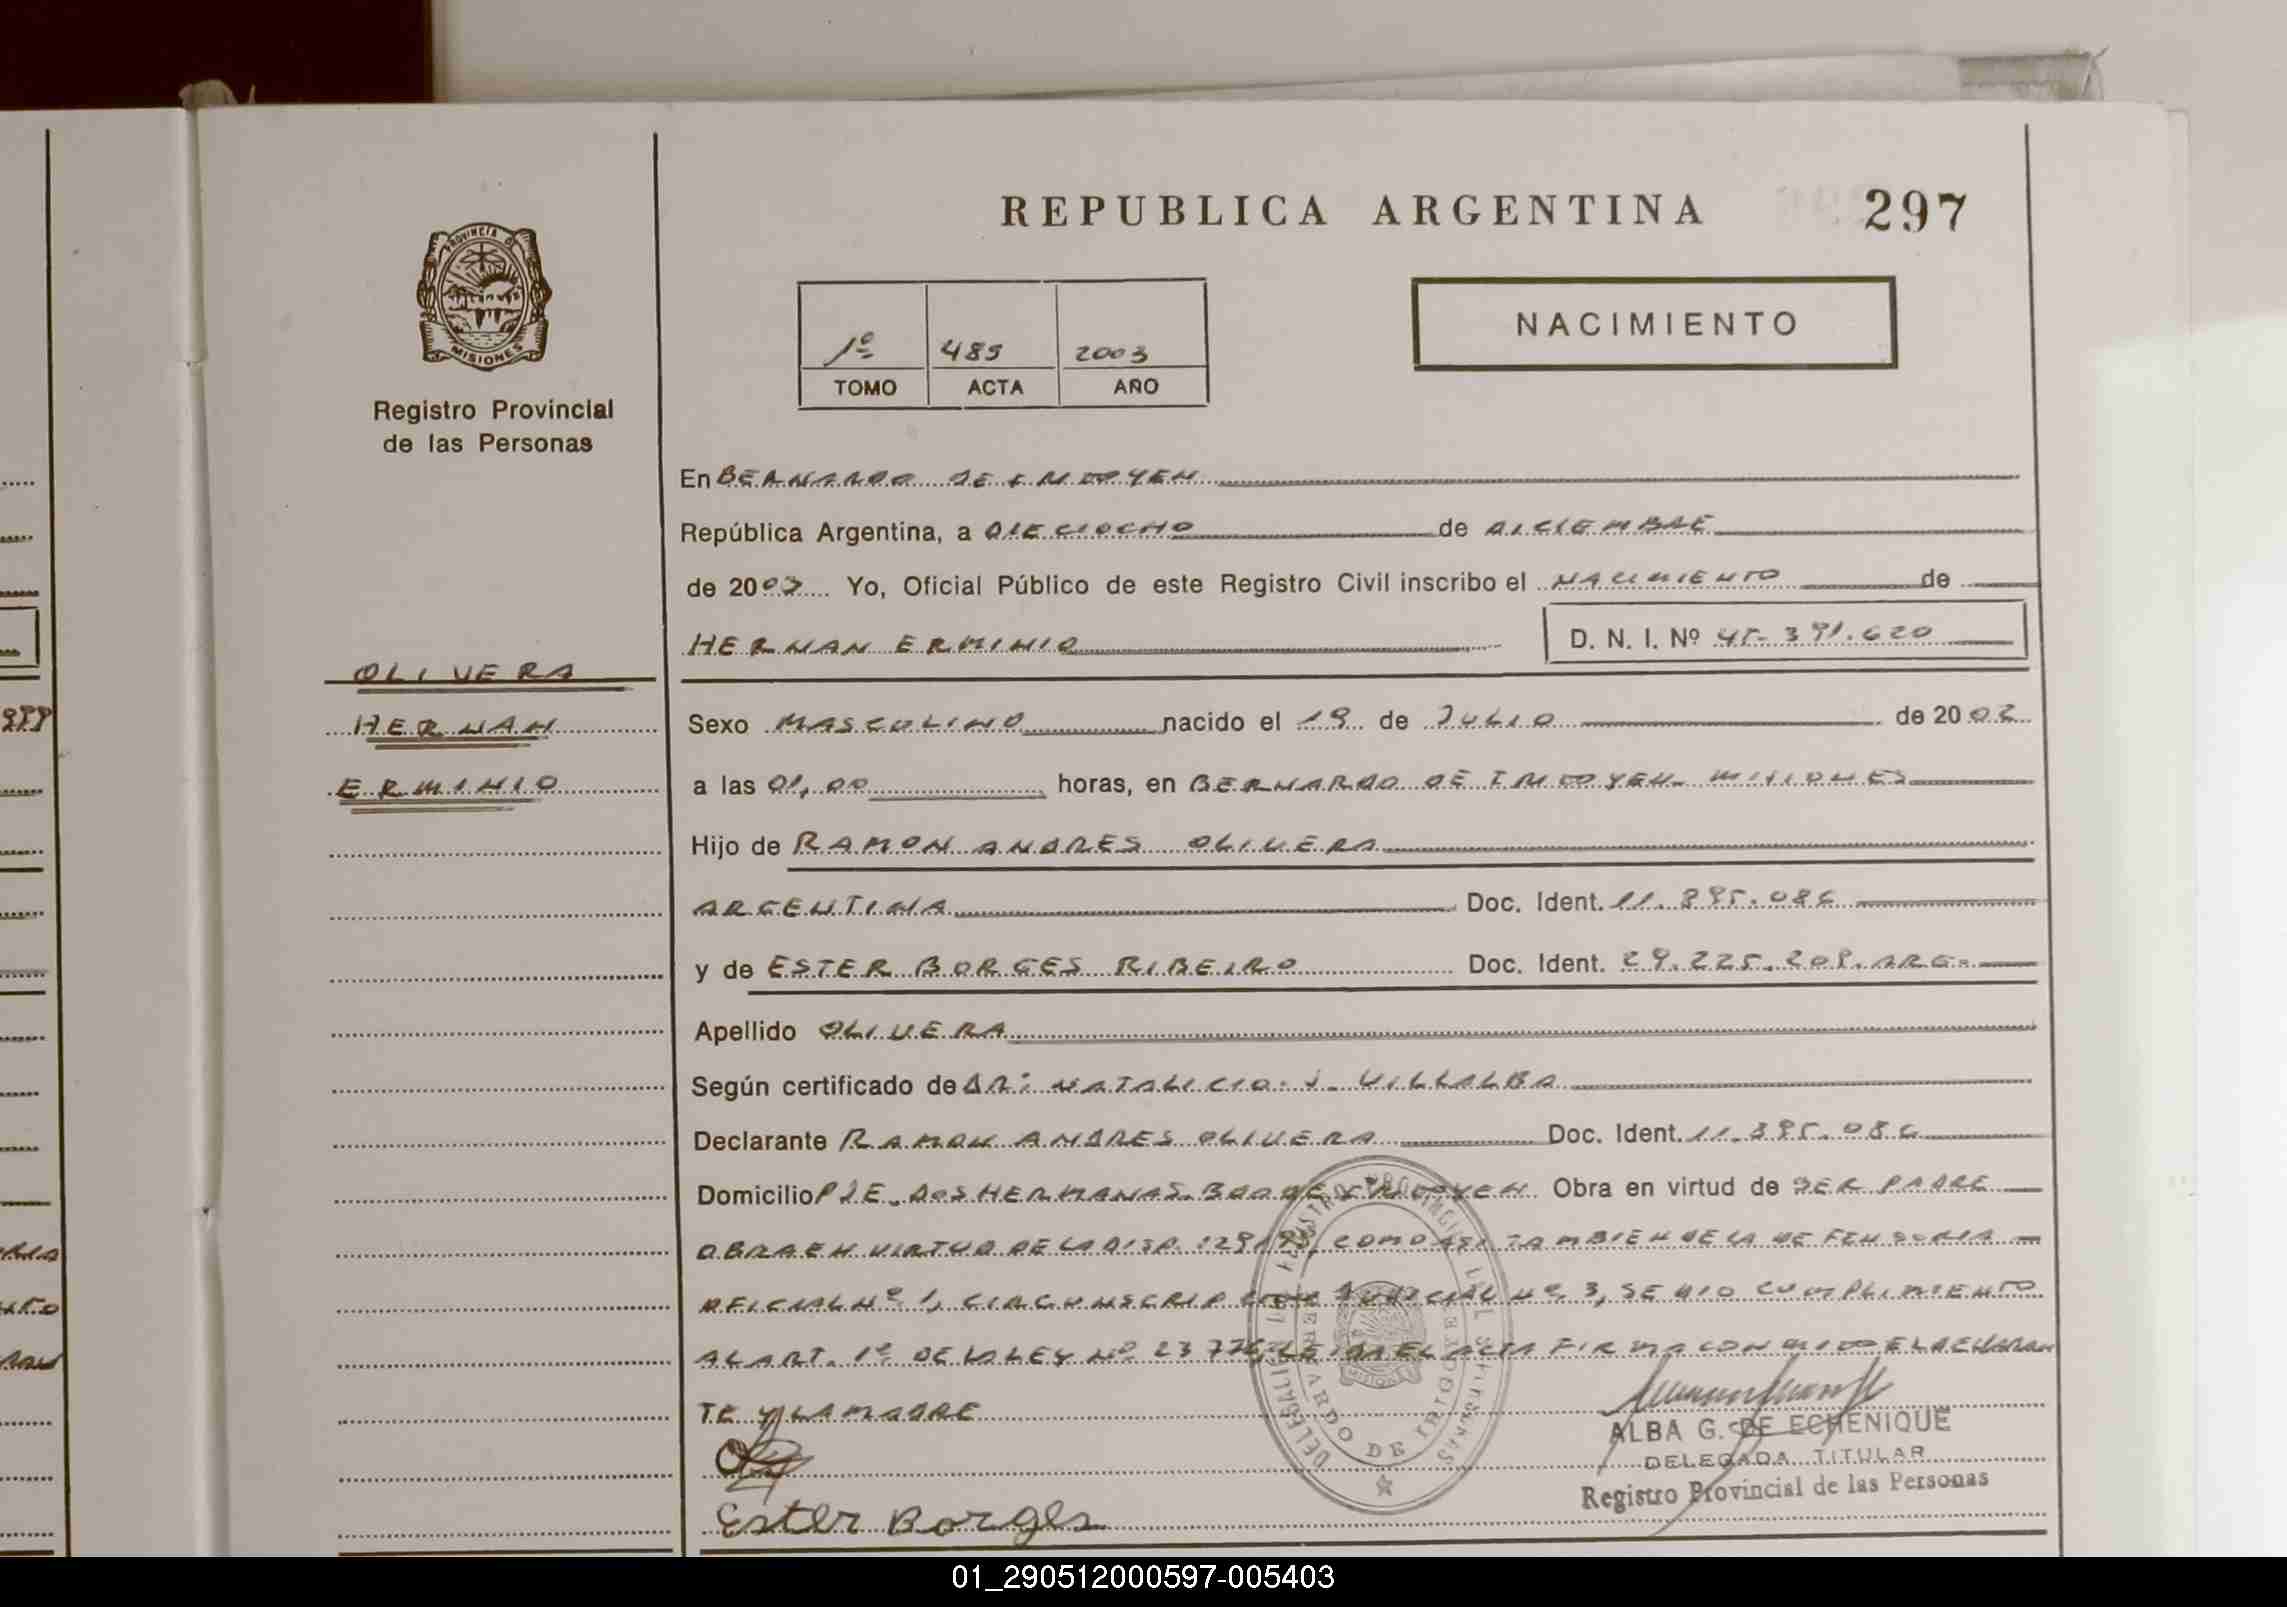 REPUBLICA ARGENTINA
297
PROVINCIA DE
MISIONES
Registro Provincial
de las Personas
1º 485 2003
TOMO ACTA AÑO
NACIMIENTO
En BERNARDO DE IRIGOYEN
República Argentina, a DIECIOCHO de DICIEMBRE
de 2003 Yo, Oficial Público de este Registro Civil inscribo el NACIMIENTO de
HERNAN ERMINIO D. N. I. Nº 45.391.620
OLIVERA
HERNAN
ERMINIO
Sexo MASCULINO nacido el 19 de JULIO de 2002
a las 01,00 horas, en BERNARDO DE IRIGOYEN - MISIONES
Hijo de RAMON ANDRES OLIVERA
ARGENTINA Doc. Ident. 11.895.086
y de ESTER BORGES RIBEIRO Doc. Ident. 29.225.209. ARG.
Apellido OLIVERA
Según certificado de DR: NATALICIO J. VILLALBA
Declarante RAMON ANDRES OLIVERA Doc. Ident. 11.895.086
Domicilio PJE. DOS HERMANAS. BDO DE IRIGOYEN Obra en virtud de SER PADRE
OBRA EN VIRTUD DE LA DISP. COMO ASI TAMBIEN DE LA DEFENSORIA
OFICIAL Nº 1, CIRCUNSCRIPCION JUDICIAL Nº 3, SE DIO CUMPLIMIENTO
AL ART. 1º DE LA LEY Nº 23776, LEIDA EL ACTA FIRMA CONMIGO EL DECLARAN
TE Y LA MADRE
DELEGACION REGISTRO PROVINCIAL DE LAS PERSONAS
BERNARDO DE IRIGOYEN
ALBA G. DE ECHENIQUE
DELEGADA TITULAR
Registro Provincial de las Personas
Ester Borges
01_290512000597-005403